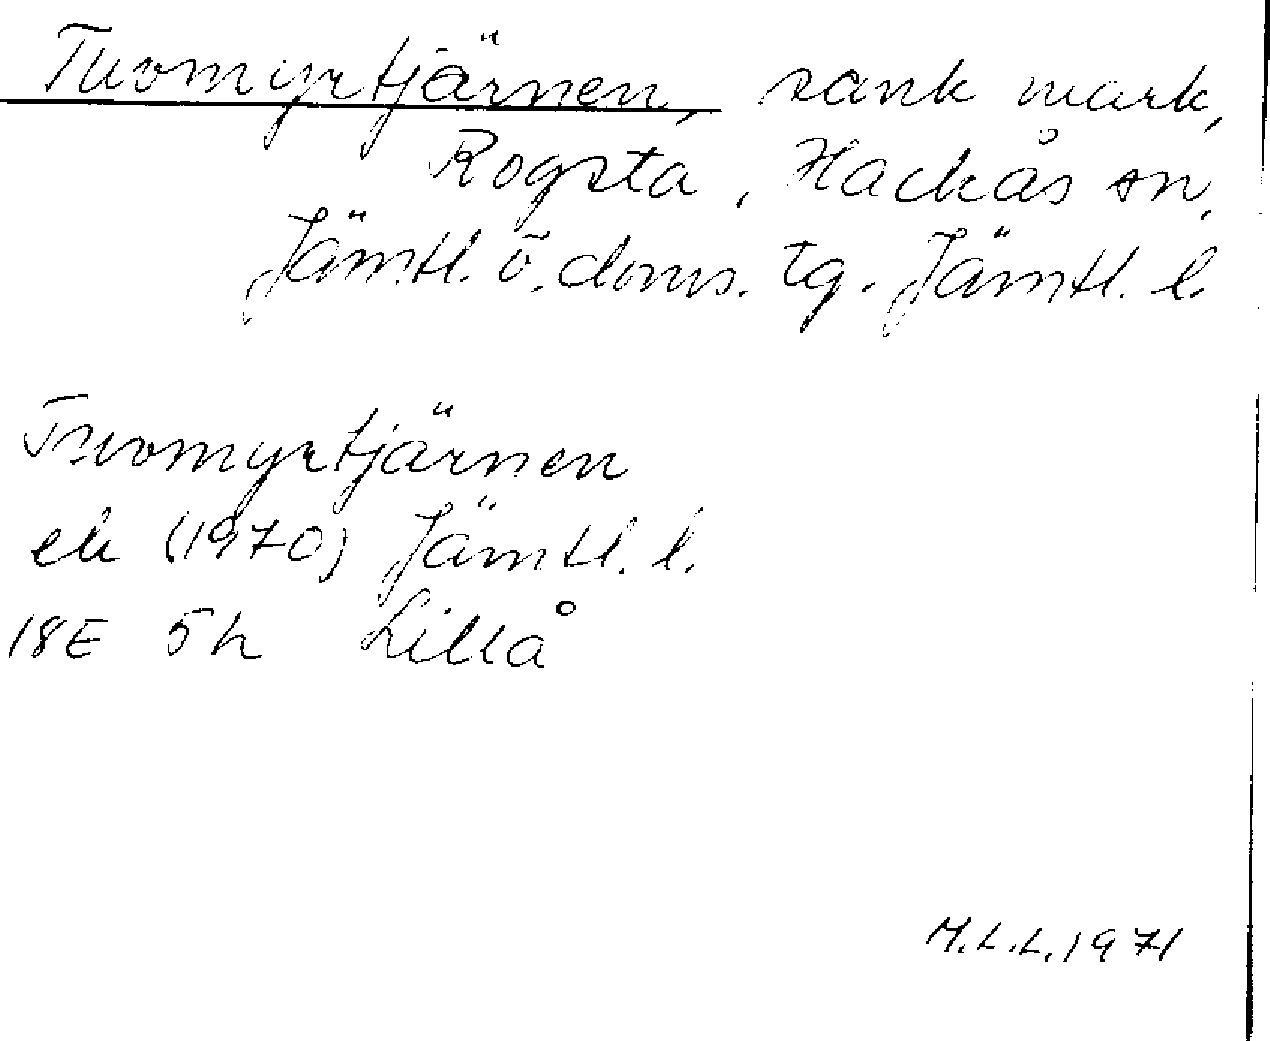 Tuvomyrtjärnen, sank mark,
Rogsta, Hackås sn,
Jämtl. ö. doms. tg. Jämtl. l.
Tuvomyrtjärnen
ek (1970) Jämtl. l.
18E 5h Lillå
M.L.L. 1971